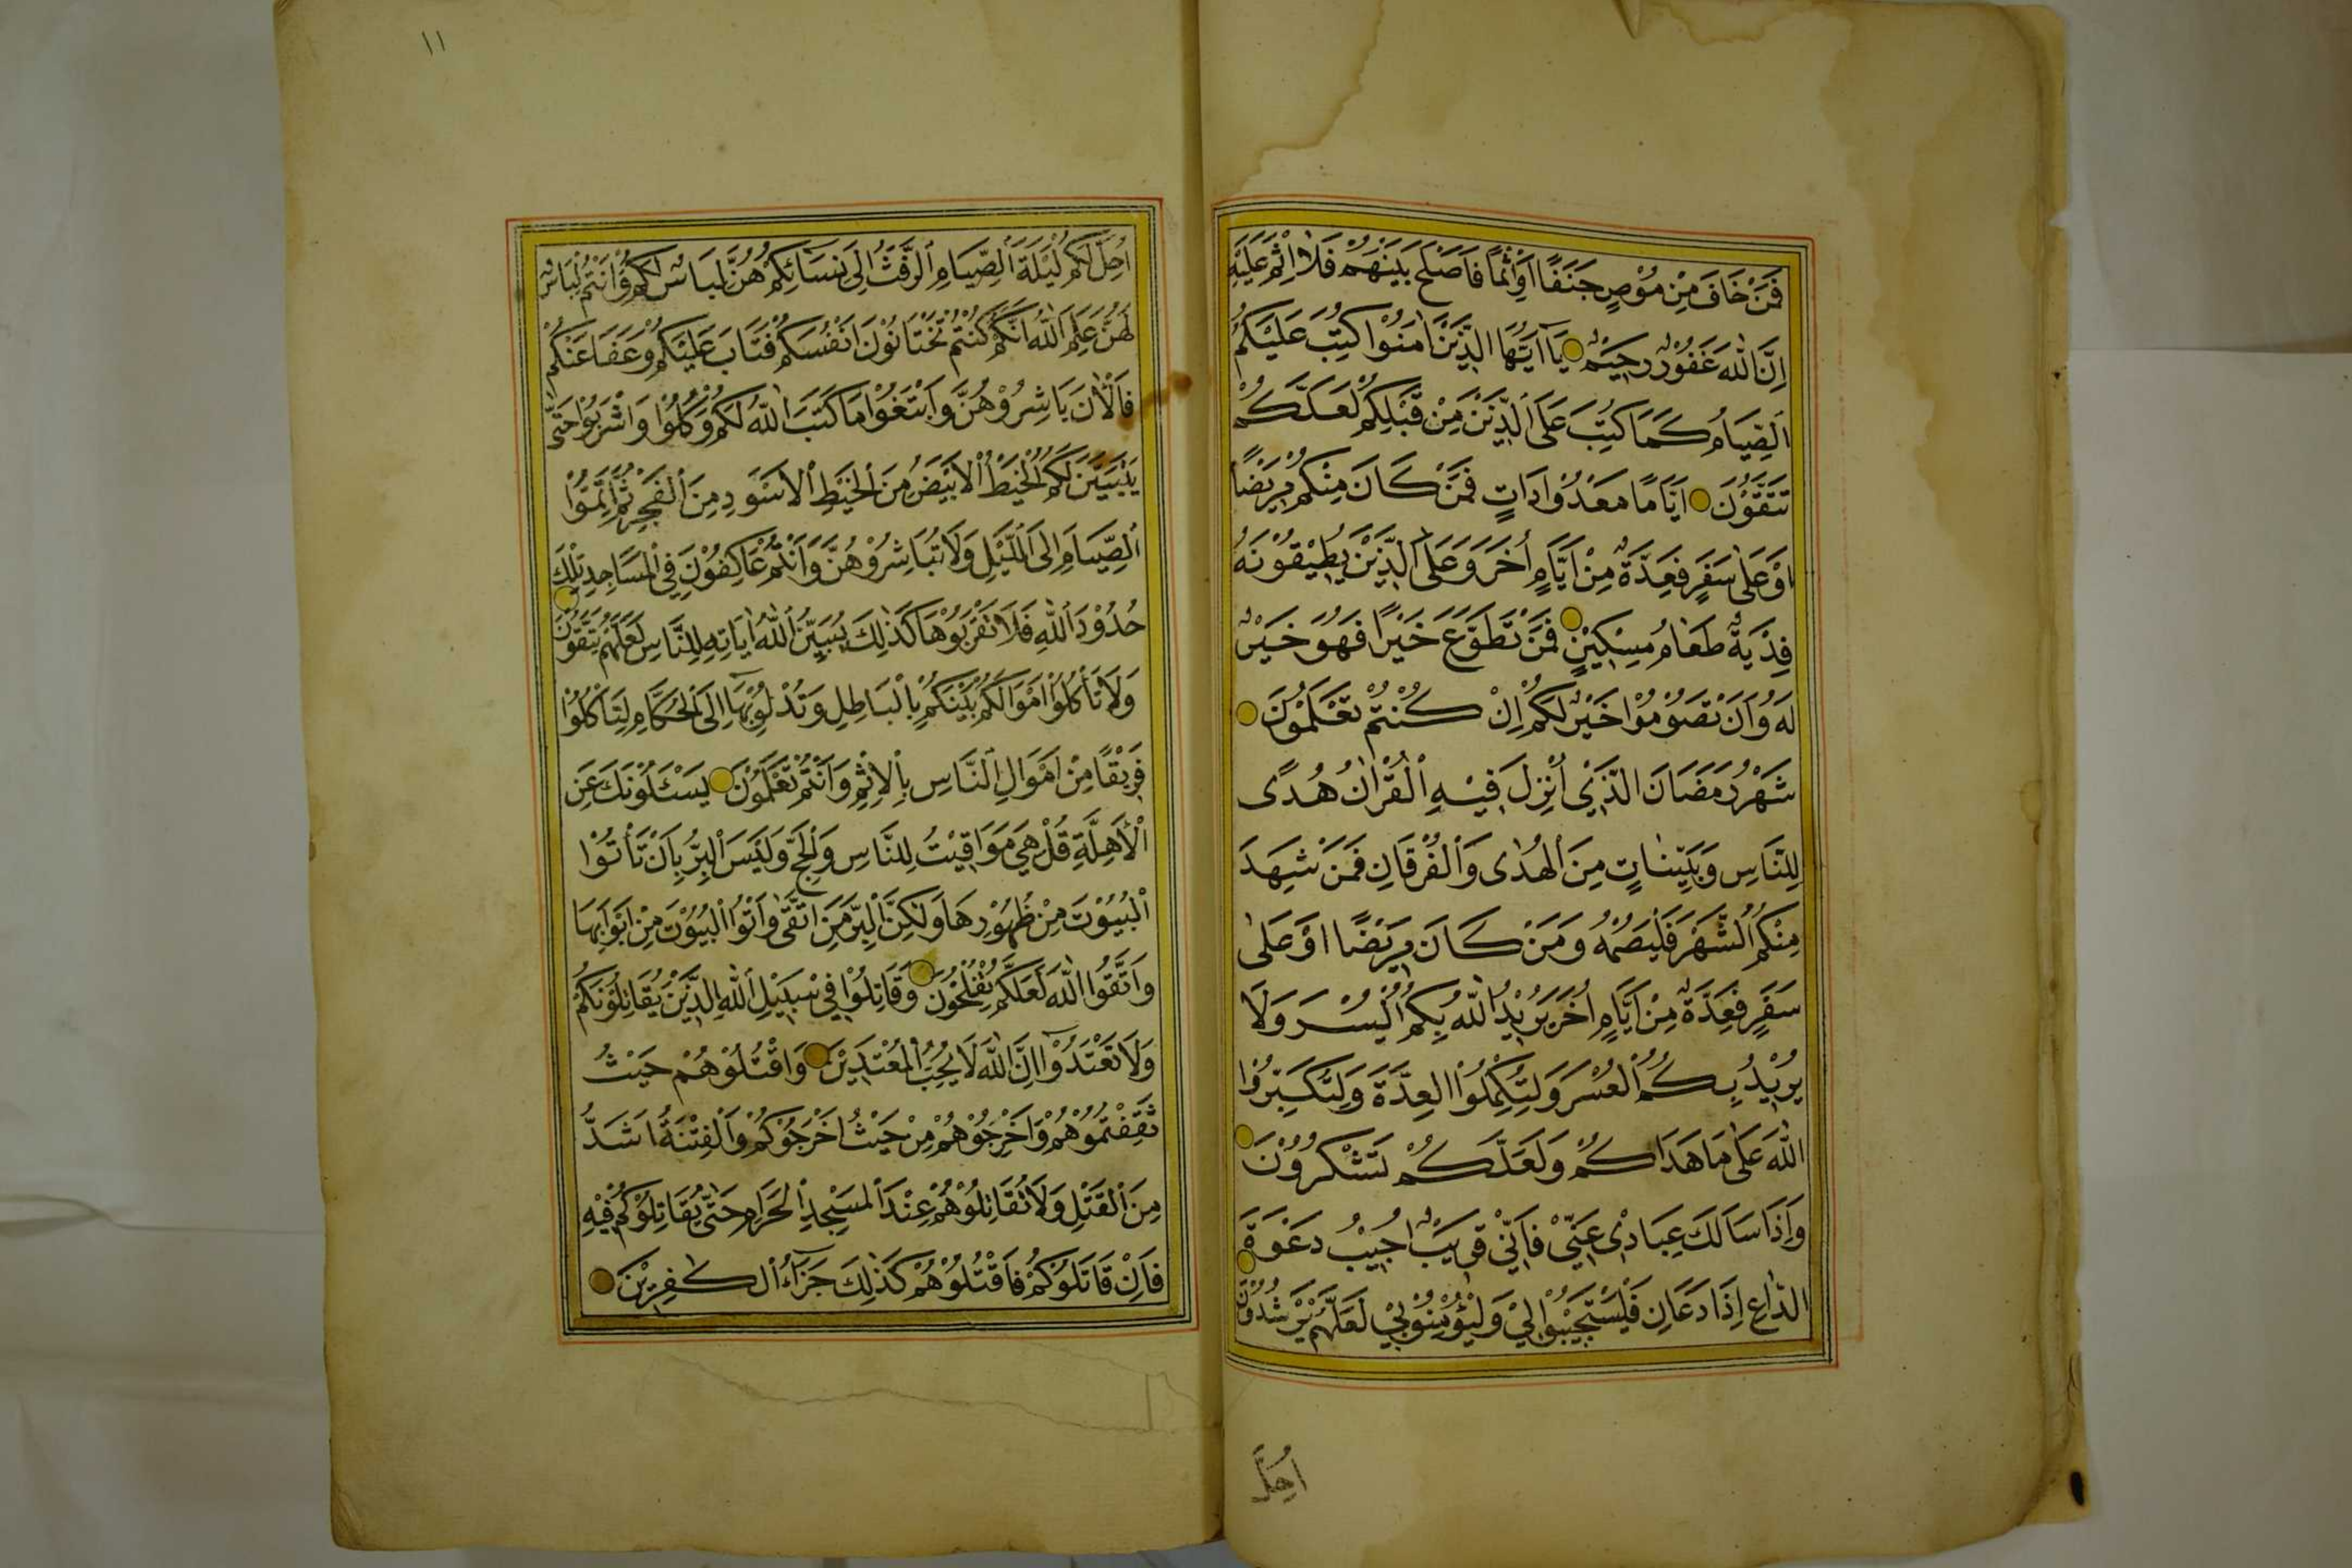 فَمَنْ خَافَ مِنْ مُوْصٍ جَنَفًا اَوْ اِثْمًا فَاَصْلَحَ بَيْنَهُمْ فَلَا اِثْمَ عَلَيْهِ
اِنَّ اللّٰهَ غَفُوْرٌ رَحِيْمٌ يَٓا اَيُّهَا الَّذِيْنَ اٰمَنُوْا كُتِبَ عَلَيْكُمُ
الصِّيَامُ كَمَا كُتِبَ عَلَى الَّذِيْنَ مِنْ قَبْلِكُمْ لَعَلَّكُمْ
تَتَّقُوْنَ اَيَّامًا مَعْدُوْدَاتٍ فَمَنْ كَانَ مِنْكُمْ مَرِيْضًا
اَوْ عَلٰى سَفَرٍ فَعِدَّةٌ مِنْ اَيَّامٍ اُخَرَ وَعَلَى الَّذِيْنَ يُطِيْقُوْنَهُ
فِدْيَةٌ طَعَامُ مِسْكِيْنٍ فَمَنْ تَطَوَّعَ خَيْرًا فَهُوَ خَيْرٌ
لَهُ وَاَنْ تَصُوْمُوْا خَيْرٌ لَكُمْ اِنْ كُنْتُمْ تَعْلَمُوْنَ
شَهْرُ رَمَضَانَ الَّذِيْ اُنْزِلَ فِيْهِ الْقُرْاٰنُ هُدًى
لِلنَّاسِ وَبَيِّنَاتٍ مِنَ الْهُدٰى وَالْفُرْقَانِ فَمَنْ شَهِدَ
مِنْكُمُ الشَّهْرَ فَلْيَصُمْهُ وَمَنْ كَانَ مَرِيْضًا اَوْ عَلٰى
سَفَرٍ فَعِدَّةٌ مِنْ اَيَّامٍ اُخَرَ يُرِيْدُ اللّٰهُ بِكُمُ الْيُسْرَ وَلَا
يُرِيْدُ بِكُمُ الْعُسْرَ وَلِتُكْمِلُوا الْعِدَّةَ وَلِتُكَبِّرُوا
اللّٰهَ عَلٰى مَا هَدَاكُمْ وَلَعَلَّكُمْ تَشْكُرُوْنَ
وَاِذَا سَاَلَكَ عِبَادِيْ عَنِّيْ فَاِنِّيْ قَرِيْبٌ اُجِيْبُ دَعْوَةَ
الدَّاعِ اِذَا دَعَانِ فَلْيَسْتَجِيْبُوْا لِيْ وَلْيُؤْمِنُوْا بِيْ لَعَلَّهُمْ يَرْشُدُوْنَ
اُحِلَّ
١١
اُحِلَّ لَكُمْ لَيْلَةَ الصِّيَامِ الرَّفَثُ اِلٰى نِسَائِكُمْ هُنَّ لِبَاسٌ لَكُمْ وَاَنْتُمْ لِبَاسٌ
لَهُنَّ عَلِمَ اللّٰهُ اَنَّكُمْ كُنْتُمْ تَخْتَانُوْنَ اَنْفُسَكُمْ فَتَابَ عَلَيْكُمْ وَعَفَا عَنْكُمْ
فَالْاٰنَ بَاشِرُوْهُنَّ وَابْتَغُوْا مَا كَتَبَ اللّٰهُ لَكُمْ وَكُلُوْا وَاشْرَبُوْا حَتّٰى
يَتَبَيَّنَ لَكُمُ الْخَيْطُ الْاَبْيَضُ مِنَ الْخَيْطِ الْاَسْوَدِ مِنَ الْفَجْرِ ثُمَّ اَتِمُّوْا
الصِّيَامَ اِلَى اللَّيْلِ وَلَا تُبَاشِرُوْهُنَّ وَاَنْتُمْ عَاكِفُوْنَ فِي الْمَسَاجِدِ تِلْكَ
حُدُوْدُ اللّٰهِ فَلَا تَقْرَبُوْهَا كَذٰلِكَ يُبَيِّنُ اللّٰهُ اٰيَاتِهِ لِلنَّاسِ لَعَلَّهُمْ يَتَّقُوْنَ
وَلَا تَأْكُلُوْا اَمْوَالَكُمْ بَيْنَكُمْ بِالْبَاطِلِ وَتُدْلُوْا بِهَٓا اِلَى الْحُكَّامِ لِتَأْكُلُوْا
فَرِيْقًا مِنْ اَمْوَالِ النَّاسِ بِالْاِثْمِ وَاَنْتُمْ تَعْلَمُوْنَ يَسْئَلُوْنَكَ عَنِ
الْاَهِلَّةِ قُلْ هِيَ مَوَاقِيْتُ لِلنَّاسِ وَالْحَجِّ وَلَيْسَ الْبِرُّ بِاَنْ تَأْتُوْا
الْبُيُوْتَ مِنْ ظُهُوْرِهَا وَلٰكِنَّ الْبِرَّ مَنِ اتَّقٰى وَاْتُوا الْبُيُوْتَ مِنْ اَبْوَابِهَا
وَاتَّقُوا اللّٰهَ لَعَلَّكُمْ تُفْلِحُوْنَ وَقَاتِلُوْا فِيْ سَبِيْلِ اللّٰهِ الَّذِيْنَ يُقَاتِلُوْنَكُمْ
وَلَا تَعْتَدُوْٓا اِنَّ اللّٰهَ لَا يُحِبُّ الْمُعْتَدِيْنَ وَاقْتُلُوْهُمْ حَيْثُ
ثَقِفْتُمُوْهُمْ وَاَخْرِجُوْهُمْ مِنْ حَيْثُ اَخْرَجُوْكُمْ وَالْفِتْنَةُ اَشَدُّ
مِنَ الْقَتْلِ وَلَا تُقَاتِلُوْهُمْ عِنْدَ الْمَسْجِدِ الْحَرَامِ حَتّٰى يُقَاتِلُوْكُمْ فِيْهِ
فَاِنْ قَاتَلُوْكُمْ فَاقْتُلُوْهُمْ كَذٰلِكَ جَزَٓاءُ الْكَفِرِيْنَ